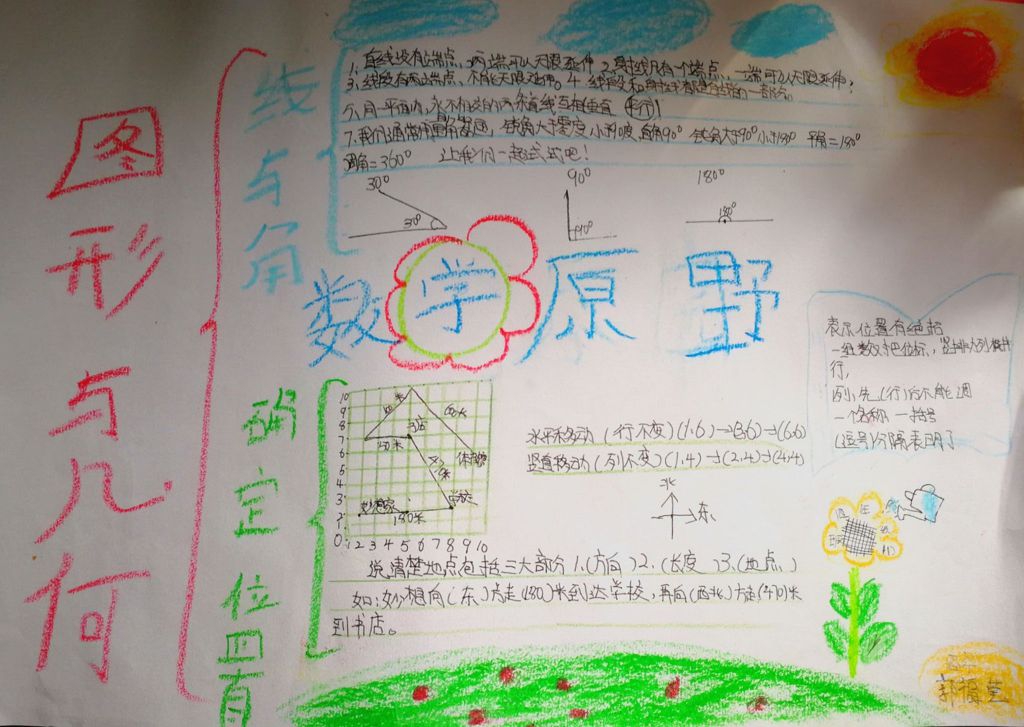 图形与几何
线与角
1、直线没有端点,两端可以无限延伸 2、射线只有一个端点,一端可以无限延伸,
3、线段有两端点,不能无限延伸。4、线段和射线都是直线的一部分。
5、同一平面内,永不相交的两条直线互相 平行!
7、我们通常用量角器, 锐角大于零度小于90度,直角90° 钝角大于90°小于180° 平角=180°
周角=360° 让我们一起试试吧!
30° 90° 180°
30° 90° 180°
数学原野
表示位置有绝招
一组数对把位标,竖排为列横排
行,
列先(行)后不能调
一个名称一括号
(逗号)分隔表明了
确定位置
10
9
8
7
6
5
4
3
2
0
1 2 3 4 5 6 7 8 9 10
书店
体育馆
学校
妙想家
180米
水平移动(行不变)(1,6)→(3,6)→(6,6)
竖直移动(列不变)(1,4)→(2,4)→(4,4)
北
东
说清楚地点包括三大部分 1.(方向)2.(长度)3.(地点)
如:妙想向(东)方走(180)米到达学校,再向(西北)方走(470)米
到书店。